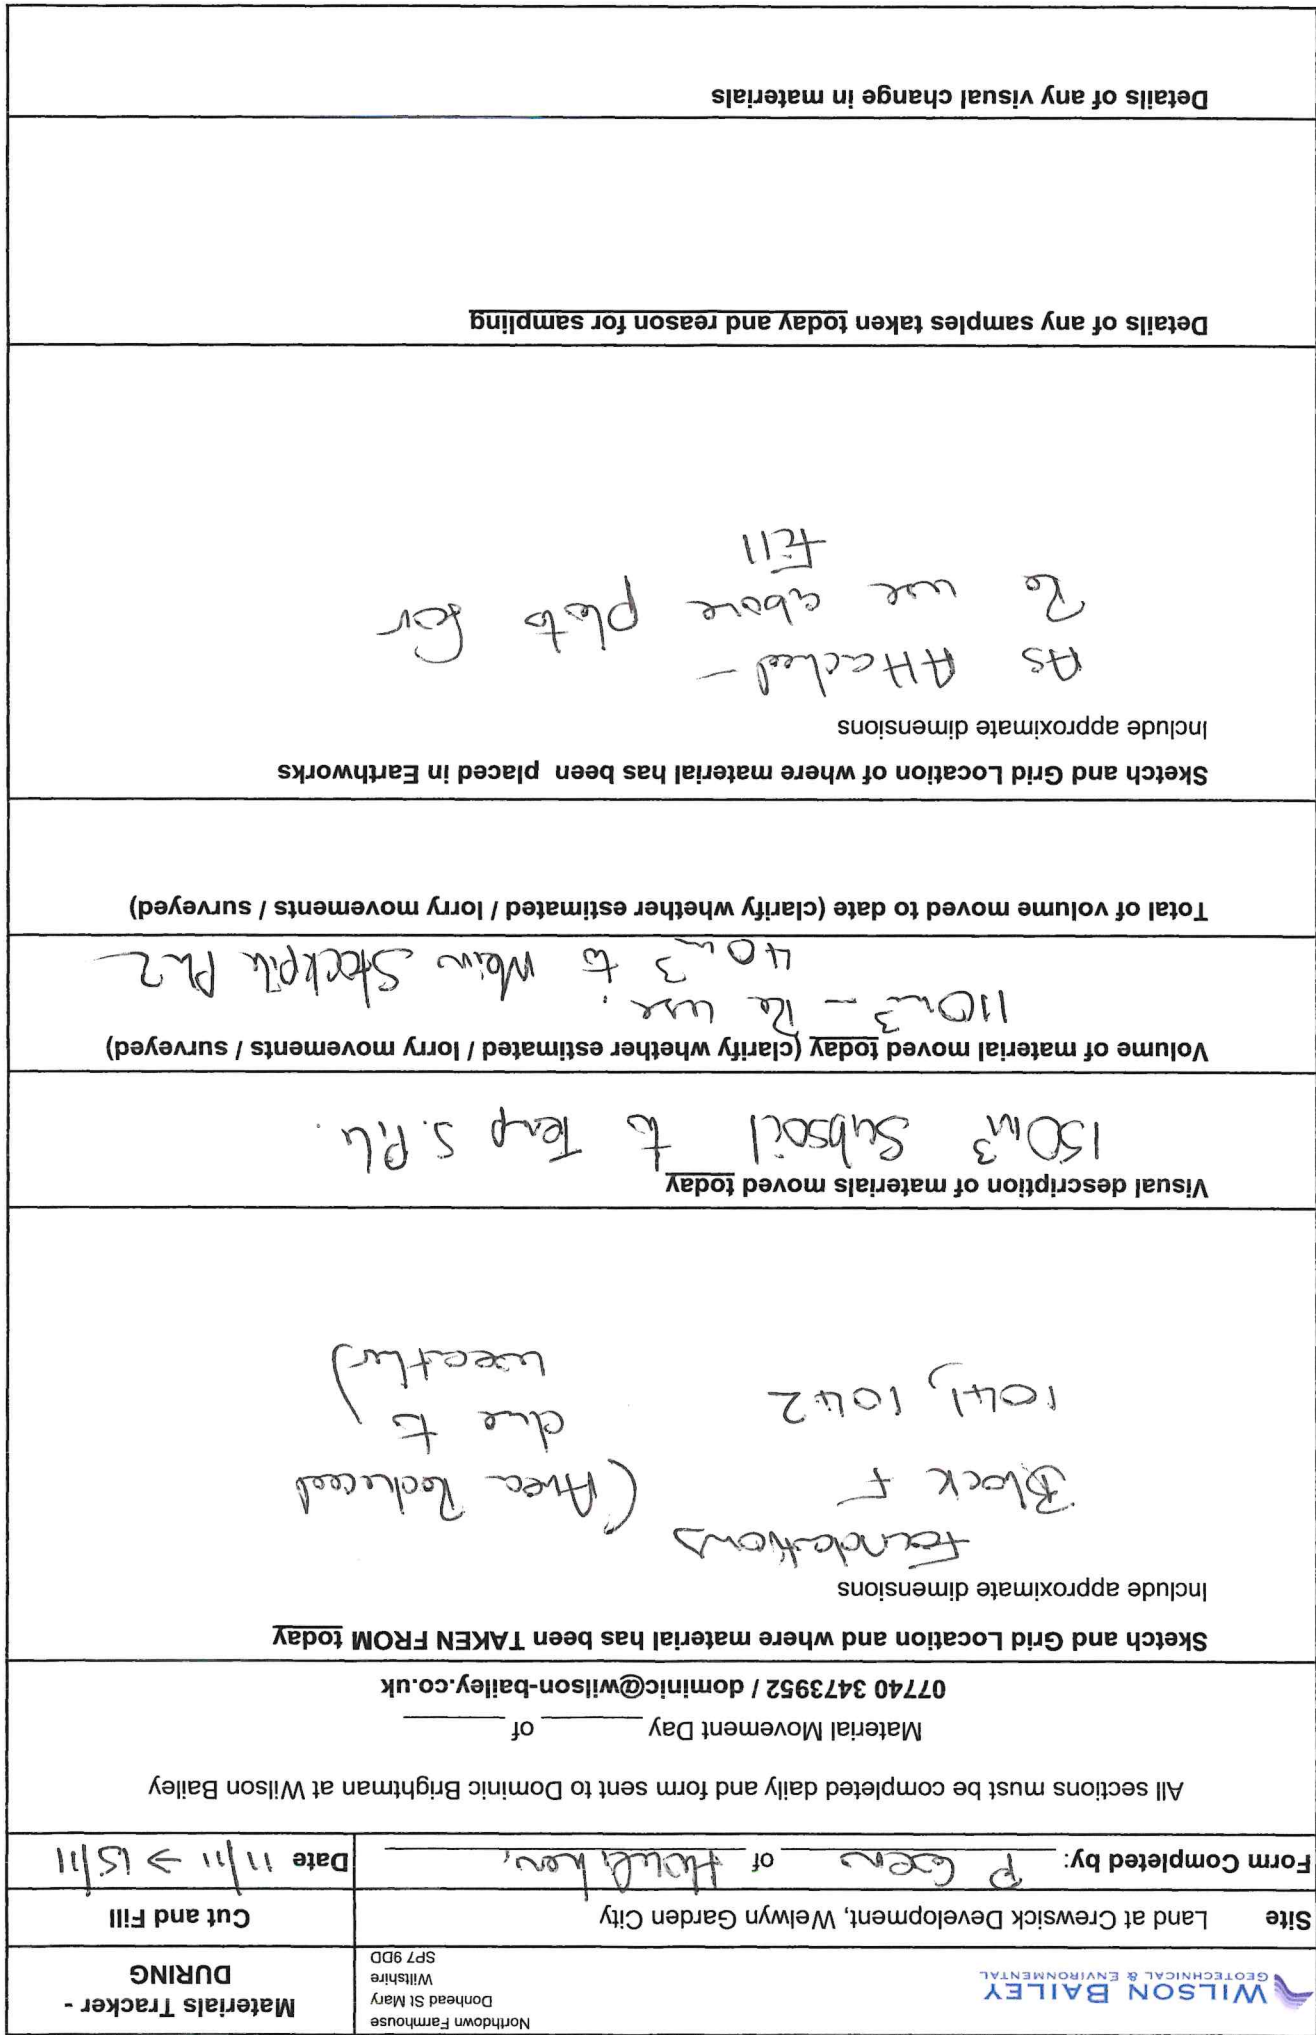 WILSON BAILEY
GEOTECHNICAL & ENVIRONMENTAL
Northdown Farmhouse
Donhead St Mary
Wiltshire
SP7 9DD
Materials Tracker -
DURING
Site Land at Crewsick Development, Welwyn Garden City
Cut and Fill
Form Completed by: P of
Date 11/11 → 15/11
All sections must be completed daily and form sent to Dominic Brightman at Wilson Bailey
Material Movement Day ______ of ______
07740 3473952 / dominic@wilson-bailey.co.uk
Sketch and Grid Location and where material has been TAKEN FROM today
Include approximate dimensions
Foundations
Block F (Area Reduced
1041, 1042 due to
weather)
Visual description of materials moved today
150m³ Subsoil to Temp S.Pile.
Volume of material moved today (clarify whether estimated / lorry movements / surveyed)
110m³ - Re use.
40m³ to Main Stockpile Ph2
Total of volume moved to date (clarify whether estimated / lorry movements / surveyed)
Sketch and Grid Location of where material has been placed in Earthworks
Include approximate dimensions
As Attached -
Re use above plots for
Fill
Details of any samples taken today and reason for sampling
Details of any visual change in materials